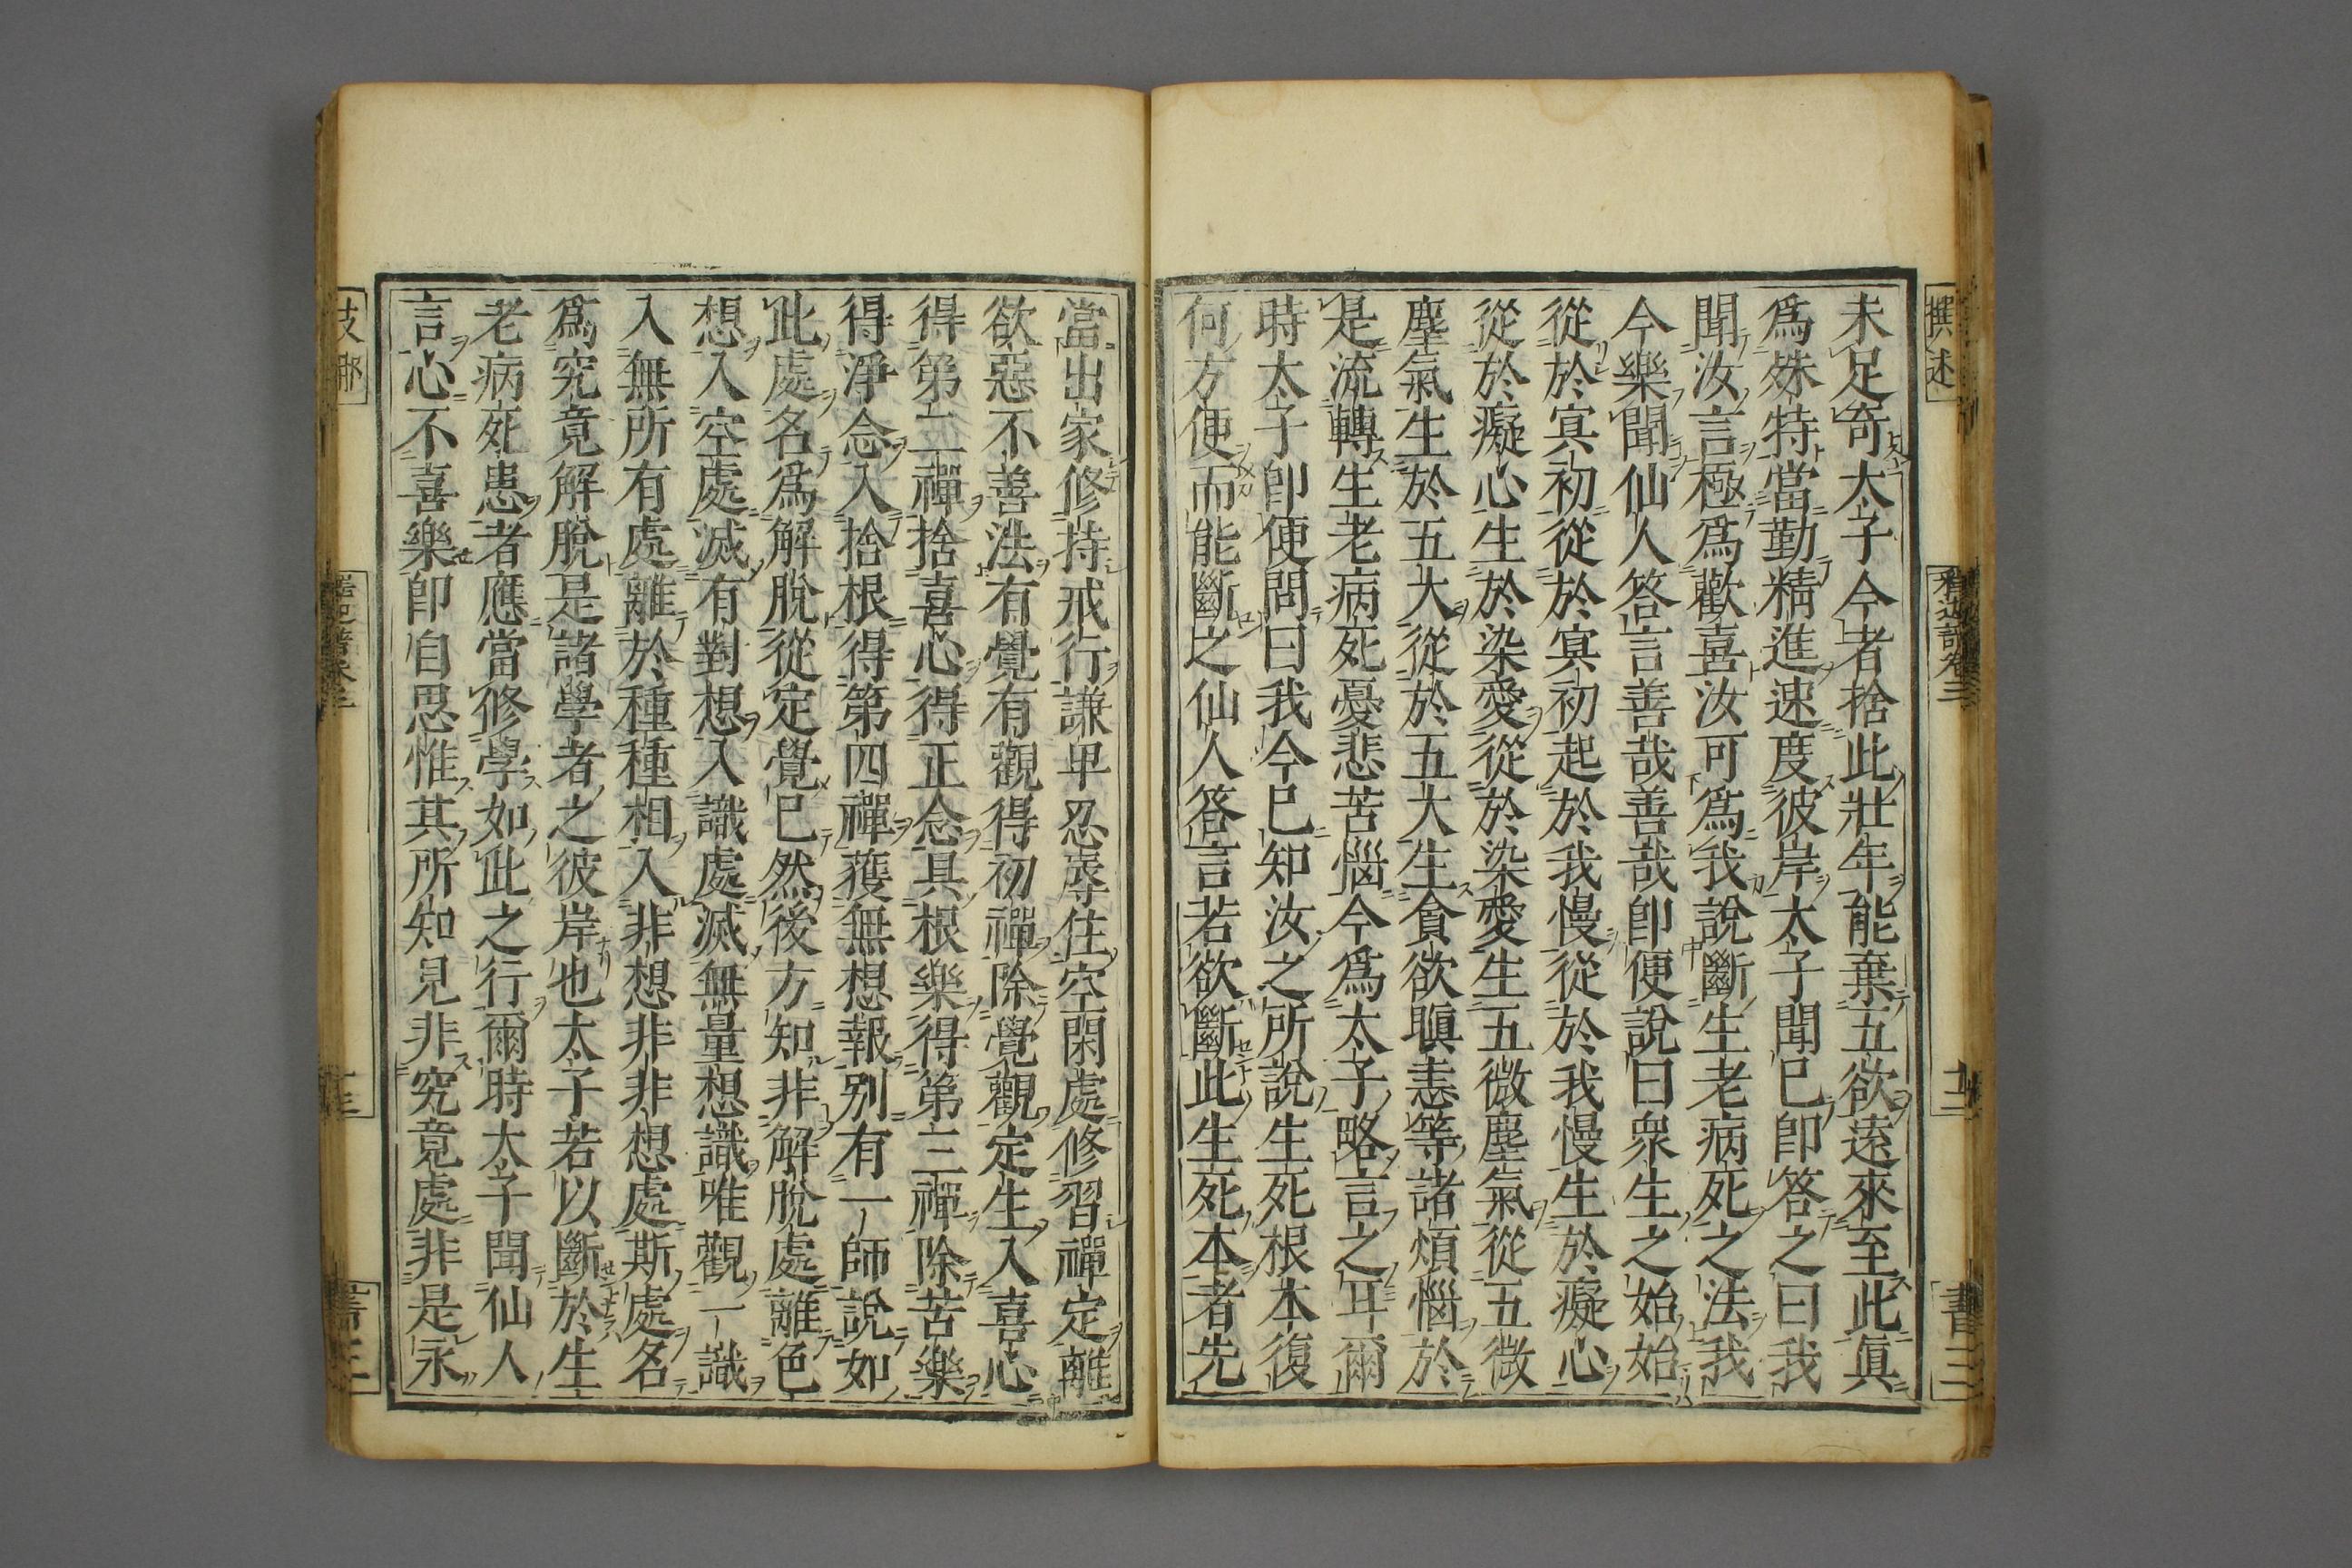 撰述
釋迦譜卷三
十二
書三
未足奇太子今者捨此壯年能棄五欲遠來至此眞
爲殊特當勤精進速度彼岸太子聞已卽答之曰我
聞汝言極爲歡喜汝可爲我說斷生老病死之法我
今樂聞仙人答言善哉善哉卽便說曰衆生之始始
從於冥初從於冥初起於我慢從於我慢生於癡心
從於癡心生於染愛從於染愛生五微塵氣從五微
塵氣生於五大從於五大生貪欲瞋恚等諸煩惱於
是流轉生老病死憂悲苦惱今爲太子略言之耳爾
時太子卽便問曰我今已知汝之所說生死根本復
何方便而能斷之仙人答言若欲斷此生死本者先
當出家修持戒行謙卑忍辱住空閑處修習禪定離
欲惡不善法有覺有觀得初禪除覺觀定生入喜心
得第二禪捨喜心得正念具根樂得第三禪除苦樂
得淨念入捨根得第四禪獲無想報別有一師說如
此處名爲解脫從定覺已然後方知非解脫處離色
想入空處滅有對想入識處滅無量想識唯觀一識
入無所有處離於種種相入非想非非想處斯處名
爲究竟解脫是諸學者之彼岸也太子若以斷於生
老病死患者應當修學如此之行爾時太子聞仙人
言心不喜樂卽自思惟其所知見非究竟處非是永
支那
釋迦譜卷三
十三
書三